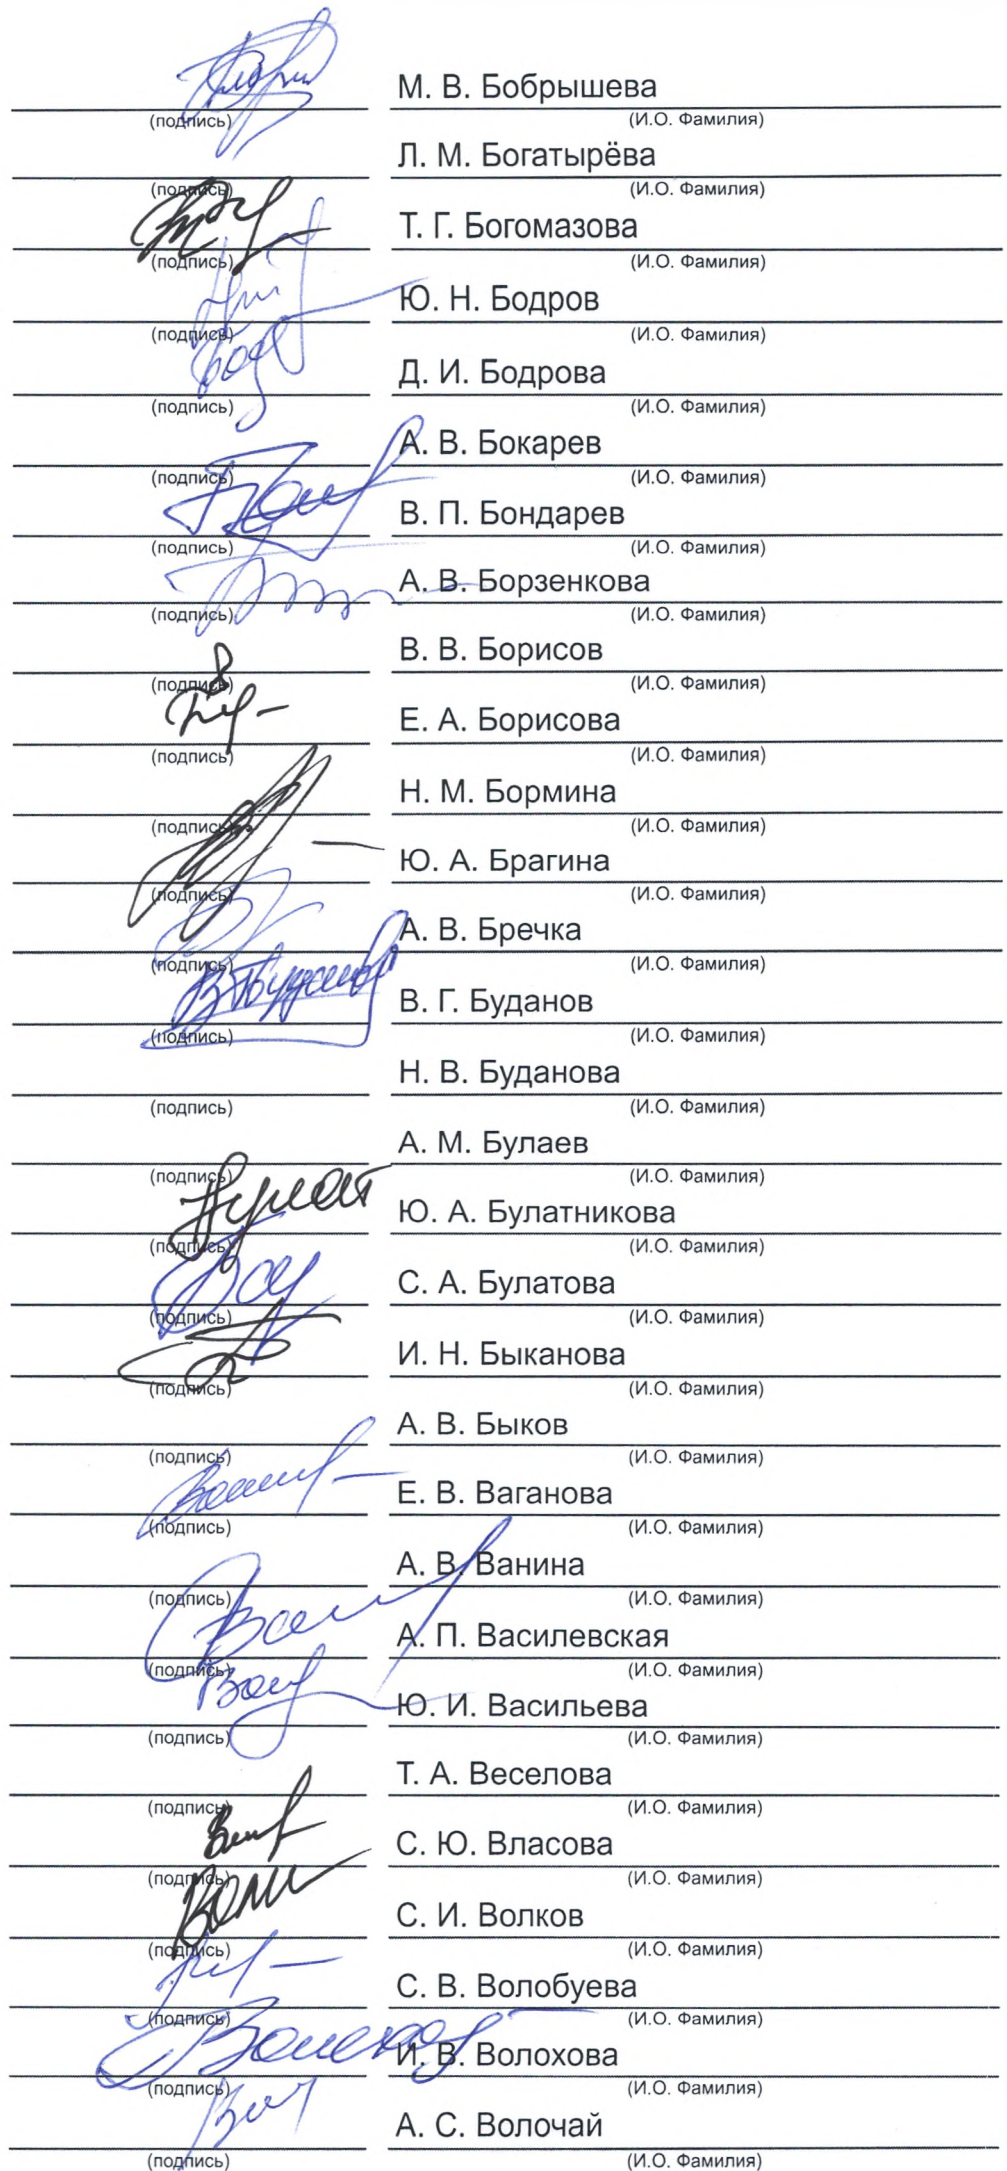 М. В. Бобрышева
(подпись) (И.О. Фамилия)
Л. М. Богатырёва
(подпись) (И.О. Фамилия)
Т. Г. Богомазова
(подпись) (И.О. Фамилия)
Ю. Н. Бодров
(подпись) (И.О. Фамилия)
Д. И. Бодрова
(подпись) (И.О. Фамилия)
А. В. Бокарев
(подпись) (И.О. Фамилия)
В. П. Бондарев
(подпись) (И.О. Фамилия)
А. В. Борзенкова
(подпись) (И.О. Фамилия)
В. В. Борисов
(подпись) (И.О. Фамилия)
Е. А. Борисова
(подпись) (И.О. Фамилия)
Н. М. Бормина
(подпись) (И.О. Фамилия)
Ю. А. Брагина
(подпись) (И.О. Фамилия)
А. В. Бречка
(подпись) (И.О. Фамилия)
В. Г. Буданов
(подпись) (И.О. Фамилия)
Н. В. Буданова
(подпись) (И.О. Фамилия)
А. М. Булаев
(подпись) (И.О. Фамилия)
Ю. А. Булатникова
(подпись) (И.О. Фамилия)
С. А. Булатова
(подпись) (И.О. Фамилия)
И. Н. Быканова
(подпись) (И.О. Фамилия)
А. В. Быков
(подпись) (И.О. Фамилия)
Е. В. Ваганова
(подпись) (И.О. Фамилия)
А. В. Ванина
(подпись) (И.О. Фамилия)
А. П. Василевская
(подпись) (И.О. Фамилия)
Ю. И. Васильева
(подпись) (И.О. Фамилия)
Т. А. Веселова
(подпись) (И.О. Фамилия)
С. Ю. Власова
(подпись) (И.О. Фамилия)
С. И. Волков
(подпись) (И.О. Фамилия)
С. В. Волобуева
(подпись) (И.О. Фамилия)
И. В. Волохова
(подпись) (И.О. Фамилия)
А. С. Волочай
(подпись) (И.О. Фамилия)